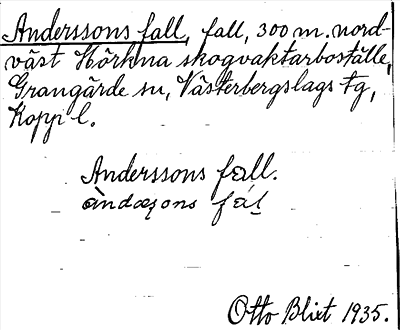 Anderssons fall, fall, 300 m. nord-
väst Hörkna skogvaktarboställe,
Grangärde sn, Västerbergslags tg,
Kopp l.
Anderssons fall.
fál
Otto Blixt 1935.